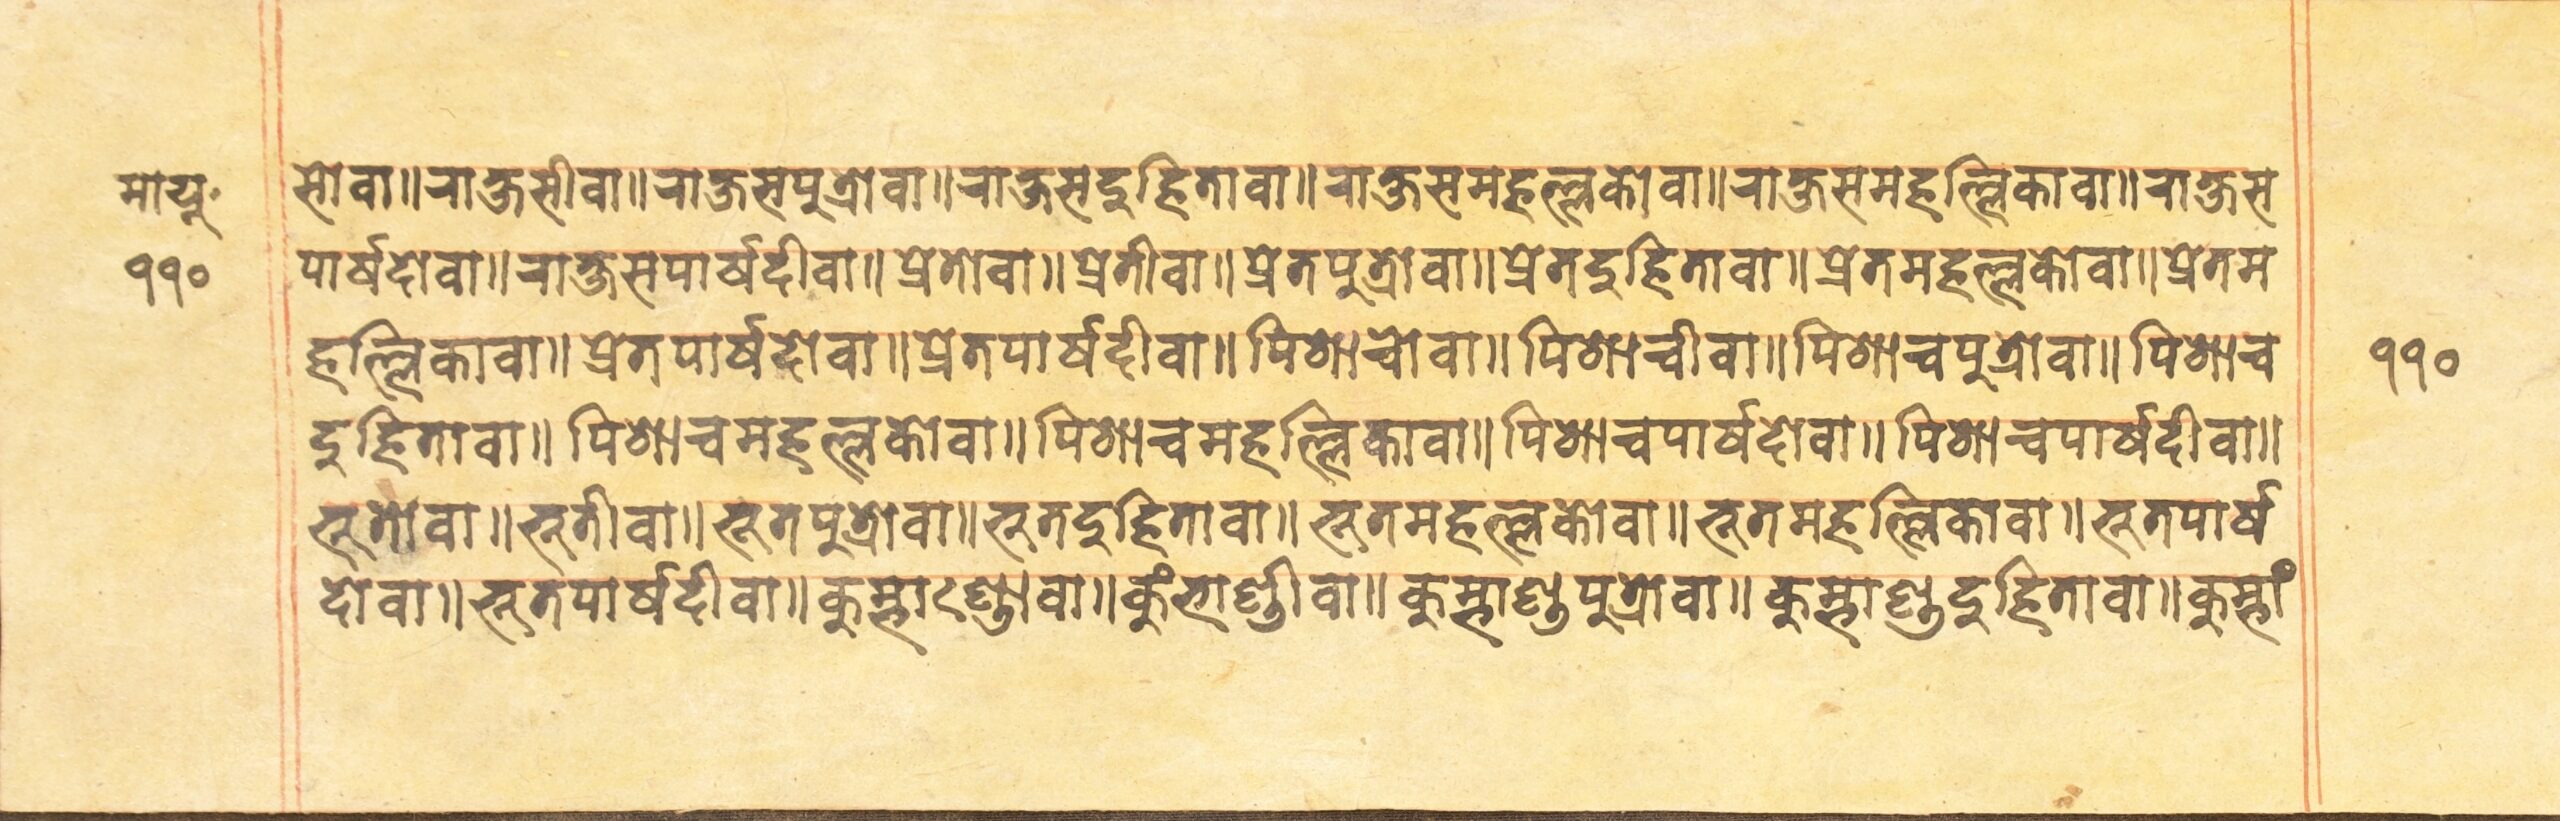 मायू॰
११०
सोवा॥राक्षसीवा॥राक्षसपुत्रोवा॥राक्षसदुहितावा॥राक्षसमहल्लकोवा॥राक्षसमहल्लिकावा॥राक्षस
पार्षदोवा॥राक्षसपार्षदीवा॥प्रेतोवा॥प्रेतीवा॥प्रेतपुत्रोवा॥प्रेतदुहितावा॥प्रेतमहल्लकोवा॥प्रेतम
हल्लिकावा॥प्रेतपार्षदोवा॥प्रेतपार्षदीवा॥पिशाचोवा॥पिशाचीवा॥पिशाचपुत्रोवा॥पिशाच
११०
दुहितावा॥पिशाचमहल्लकोवा॥पिशाचमहल्लिकावा॥पिशाचपार्षदोवा॥पिशाचपार्षदीवा॥
भूतोवा॥भूतीवा॥भूतपुत्रोवा॥भूतदुहितावा॥भूतमहल्लकोवा॥भूतमहल्लिकावा॥भूतपार्ष
दोवा॥भूतपार्षदीवा॥कुम्भाण्डोवा॥कुंभाण्डीवा॥कुम्भाण्डपुत्रोवा॥कुम्भाण्डदुहितावा॥कुम्भां